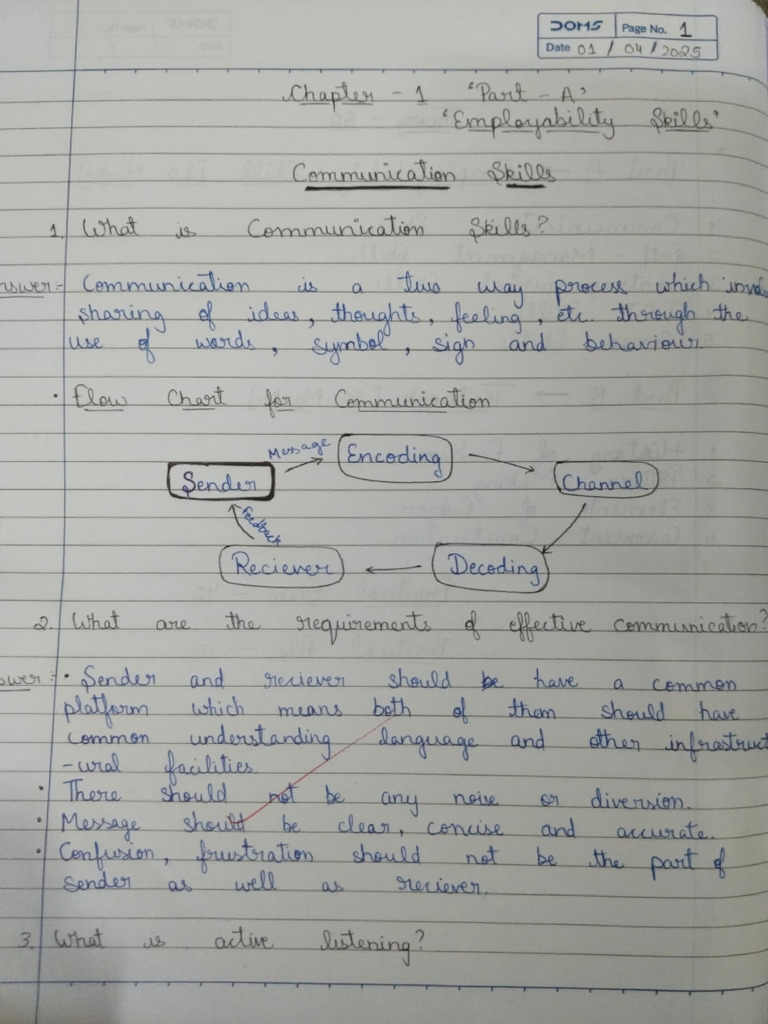 DOMS Page No. 1
Date 01 / 04 / 2025
Chapter - 1 'Part - A'
'Employability Skills'
Communication Skills
1. What is Communication Skills?
nswer:- Communication is a two way process which invol
sharing of ideas, thoughts, feeling, etc. through the
use of words, symbol, sign and behaviour
• Flow Chart for Communication
Message
Encoding
Sender
Channel
Feedback
Reciever
Decoding
2. What are the requirements of effective communication?
swer:- • Sender and reciever should be have a common
platform which means both of them should have
common understanding language and other infrastruct
-ural facilities.
• There should not be any noise or diversion.
• Message should be clear, concise and accurate.
• Confusion, frustration should not be the part of
sender as well as reciever.
3. What is active listening?